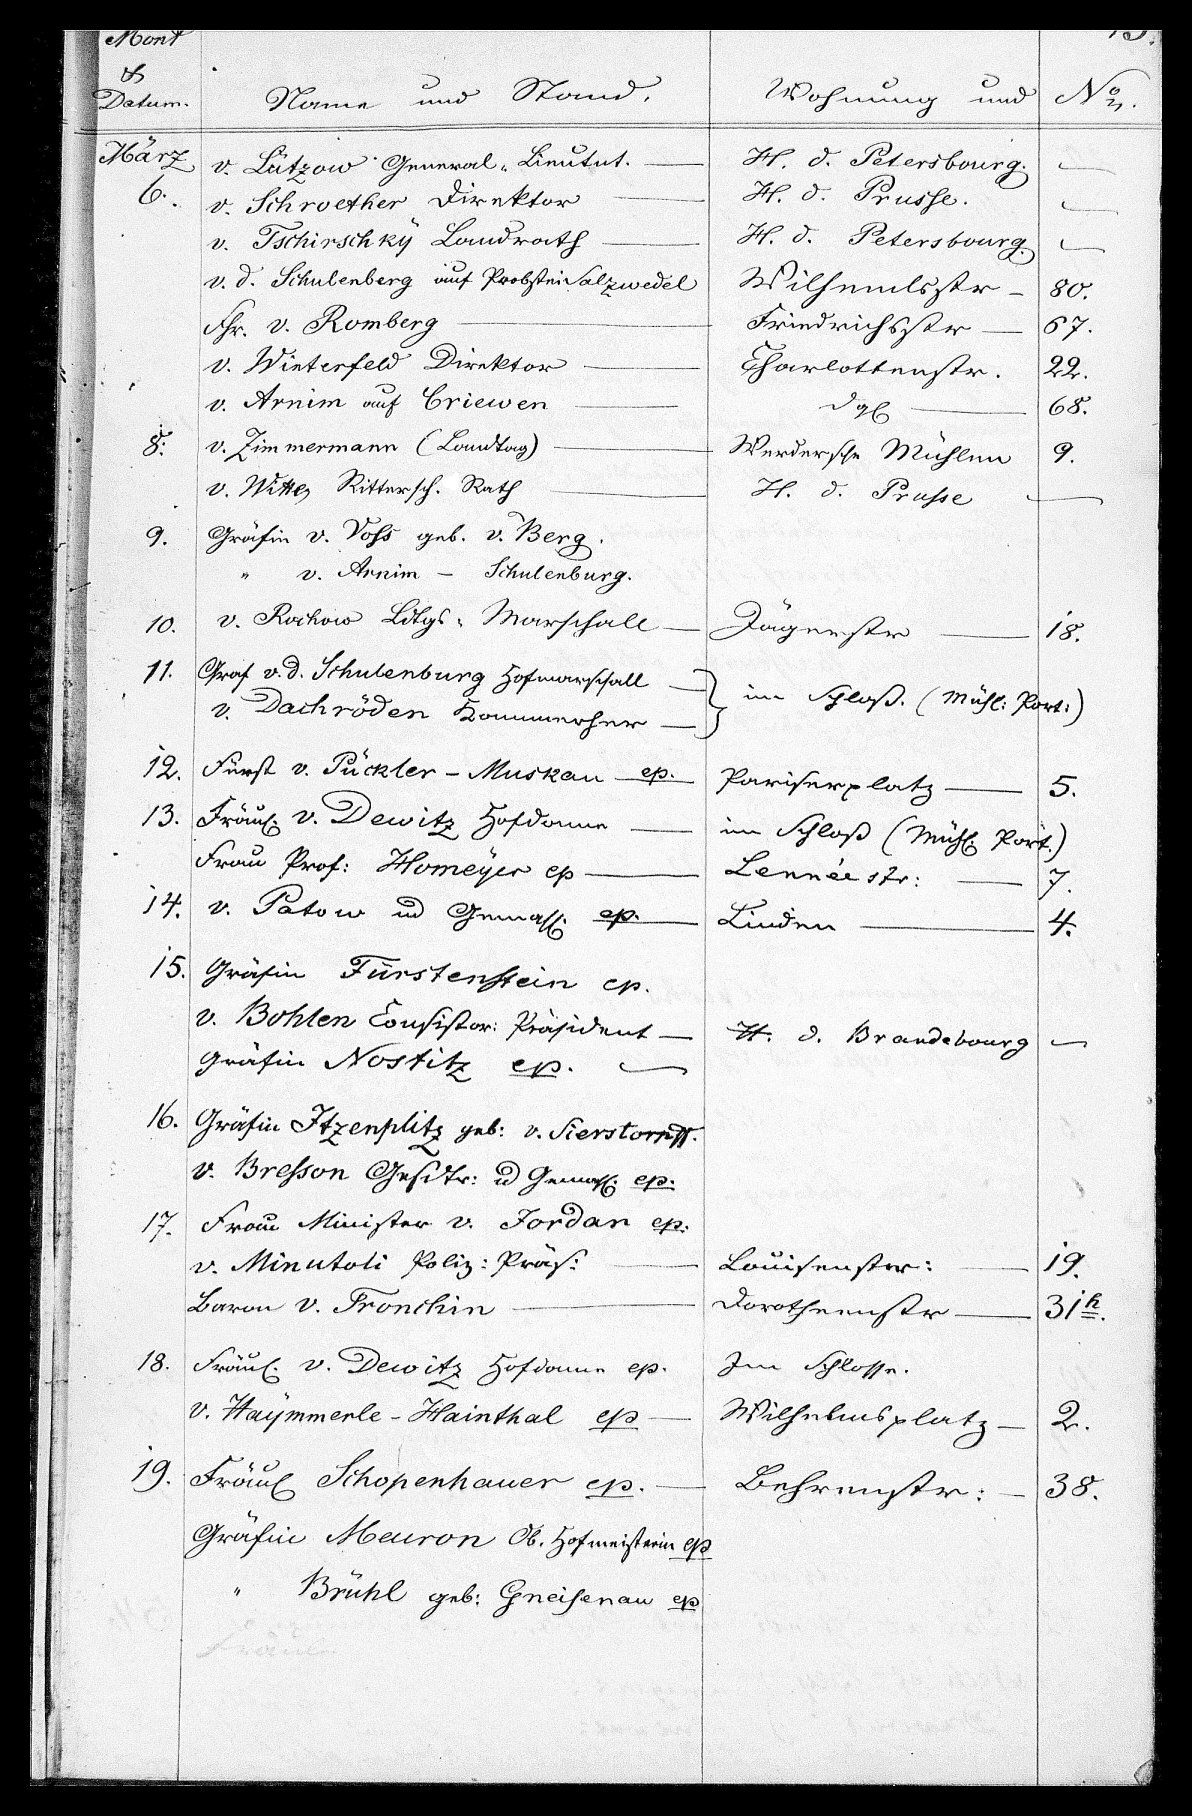 15.
Mont & Datum. Name und Stand. Wohnung und No.
März
6. v. Lützow General-Lieutnt. — H. d. Petersbourg. —
v. Schroether Direktor — H. d. Prusse. —
v. Tschirschky Landrath — H. d. Petersbourg. —
v. d. Schulenberg auf Probstei Salzwedel Wilhemlsstr — 80.
Fhr. v. Romberg — Friedrichsstr — 67.
v. Winterfeld Direktor — Charlottenstr. 22.
v. Arnim auf Criewen — dgl — 68.
8. v. Zimmermann (Landtag) — Werdersche Mühlen 9.
v. Witte, Rittersch. Rath — H. d. Prusse —
9. Gräfin v. Voss geb. v. Berg.
" v. Arnim – Schulenburg.
10. v. Rochow Ldtgs. Marschall — Jägerstr — 18.
11. Graf v. d. Schulenburg Hofmarschall —
v. Dachröden Kammerher — } im Schloß. (Mühl: Port:)
12. Fürst v. Pückler – Muskau — ep. Pariserplatz — 5.
13. Fräul. v. Dewitz Hofdame — im Schloß (Mühl. Port.)
Frau Prof: Homeÿer ep — Lennéestr: — 7.
14. v. Patow ud Gemahl. ep. — Linden — 4.
15. Gräfin Fürstenstein ep.
v. Bohlen Consistor: Präsident — H. d. Brandebourg —
Gräfin Nostitz ep. —
16. Gräfin Itzenplitz geb: v. Sierstorpff.
v. Bresson Gesdtr: ud Gemahl. ep.
17. Frau Minister v. Jordan ep.
v. Minutoli Poliz: Präs: — Louisenstr: — 19.
Baron v. Tronchin — Dorotheenstr — 31
18. Fräul. v. Dewitz Hofdame ep. Im Schlosse.
v. Haÿmmerle – Hainthal ep — Wilhelmsplatz — 2.
19. Fräul Schopenhauer ep. — Behrenstr: — 38.
Gräfin Meuron Ob. Hofmeisterin ep
" Brühl geb: Gneisenau ep